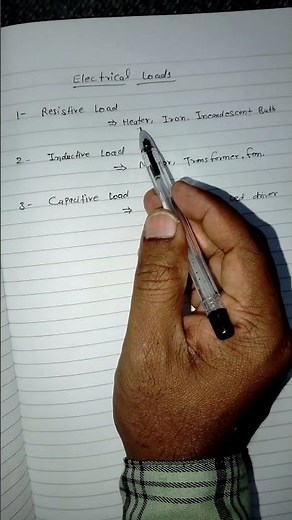 Electrical Loads
1- Resistive Load
⇒ Heater, Iron. Incandescent Bulb
2- Inductive Load
⇒ Transformer, fan.
3- Capacitive Load
⇒ driver